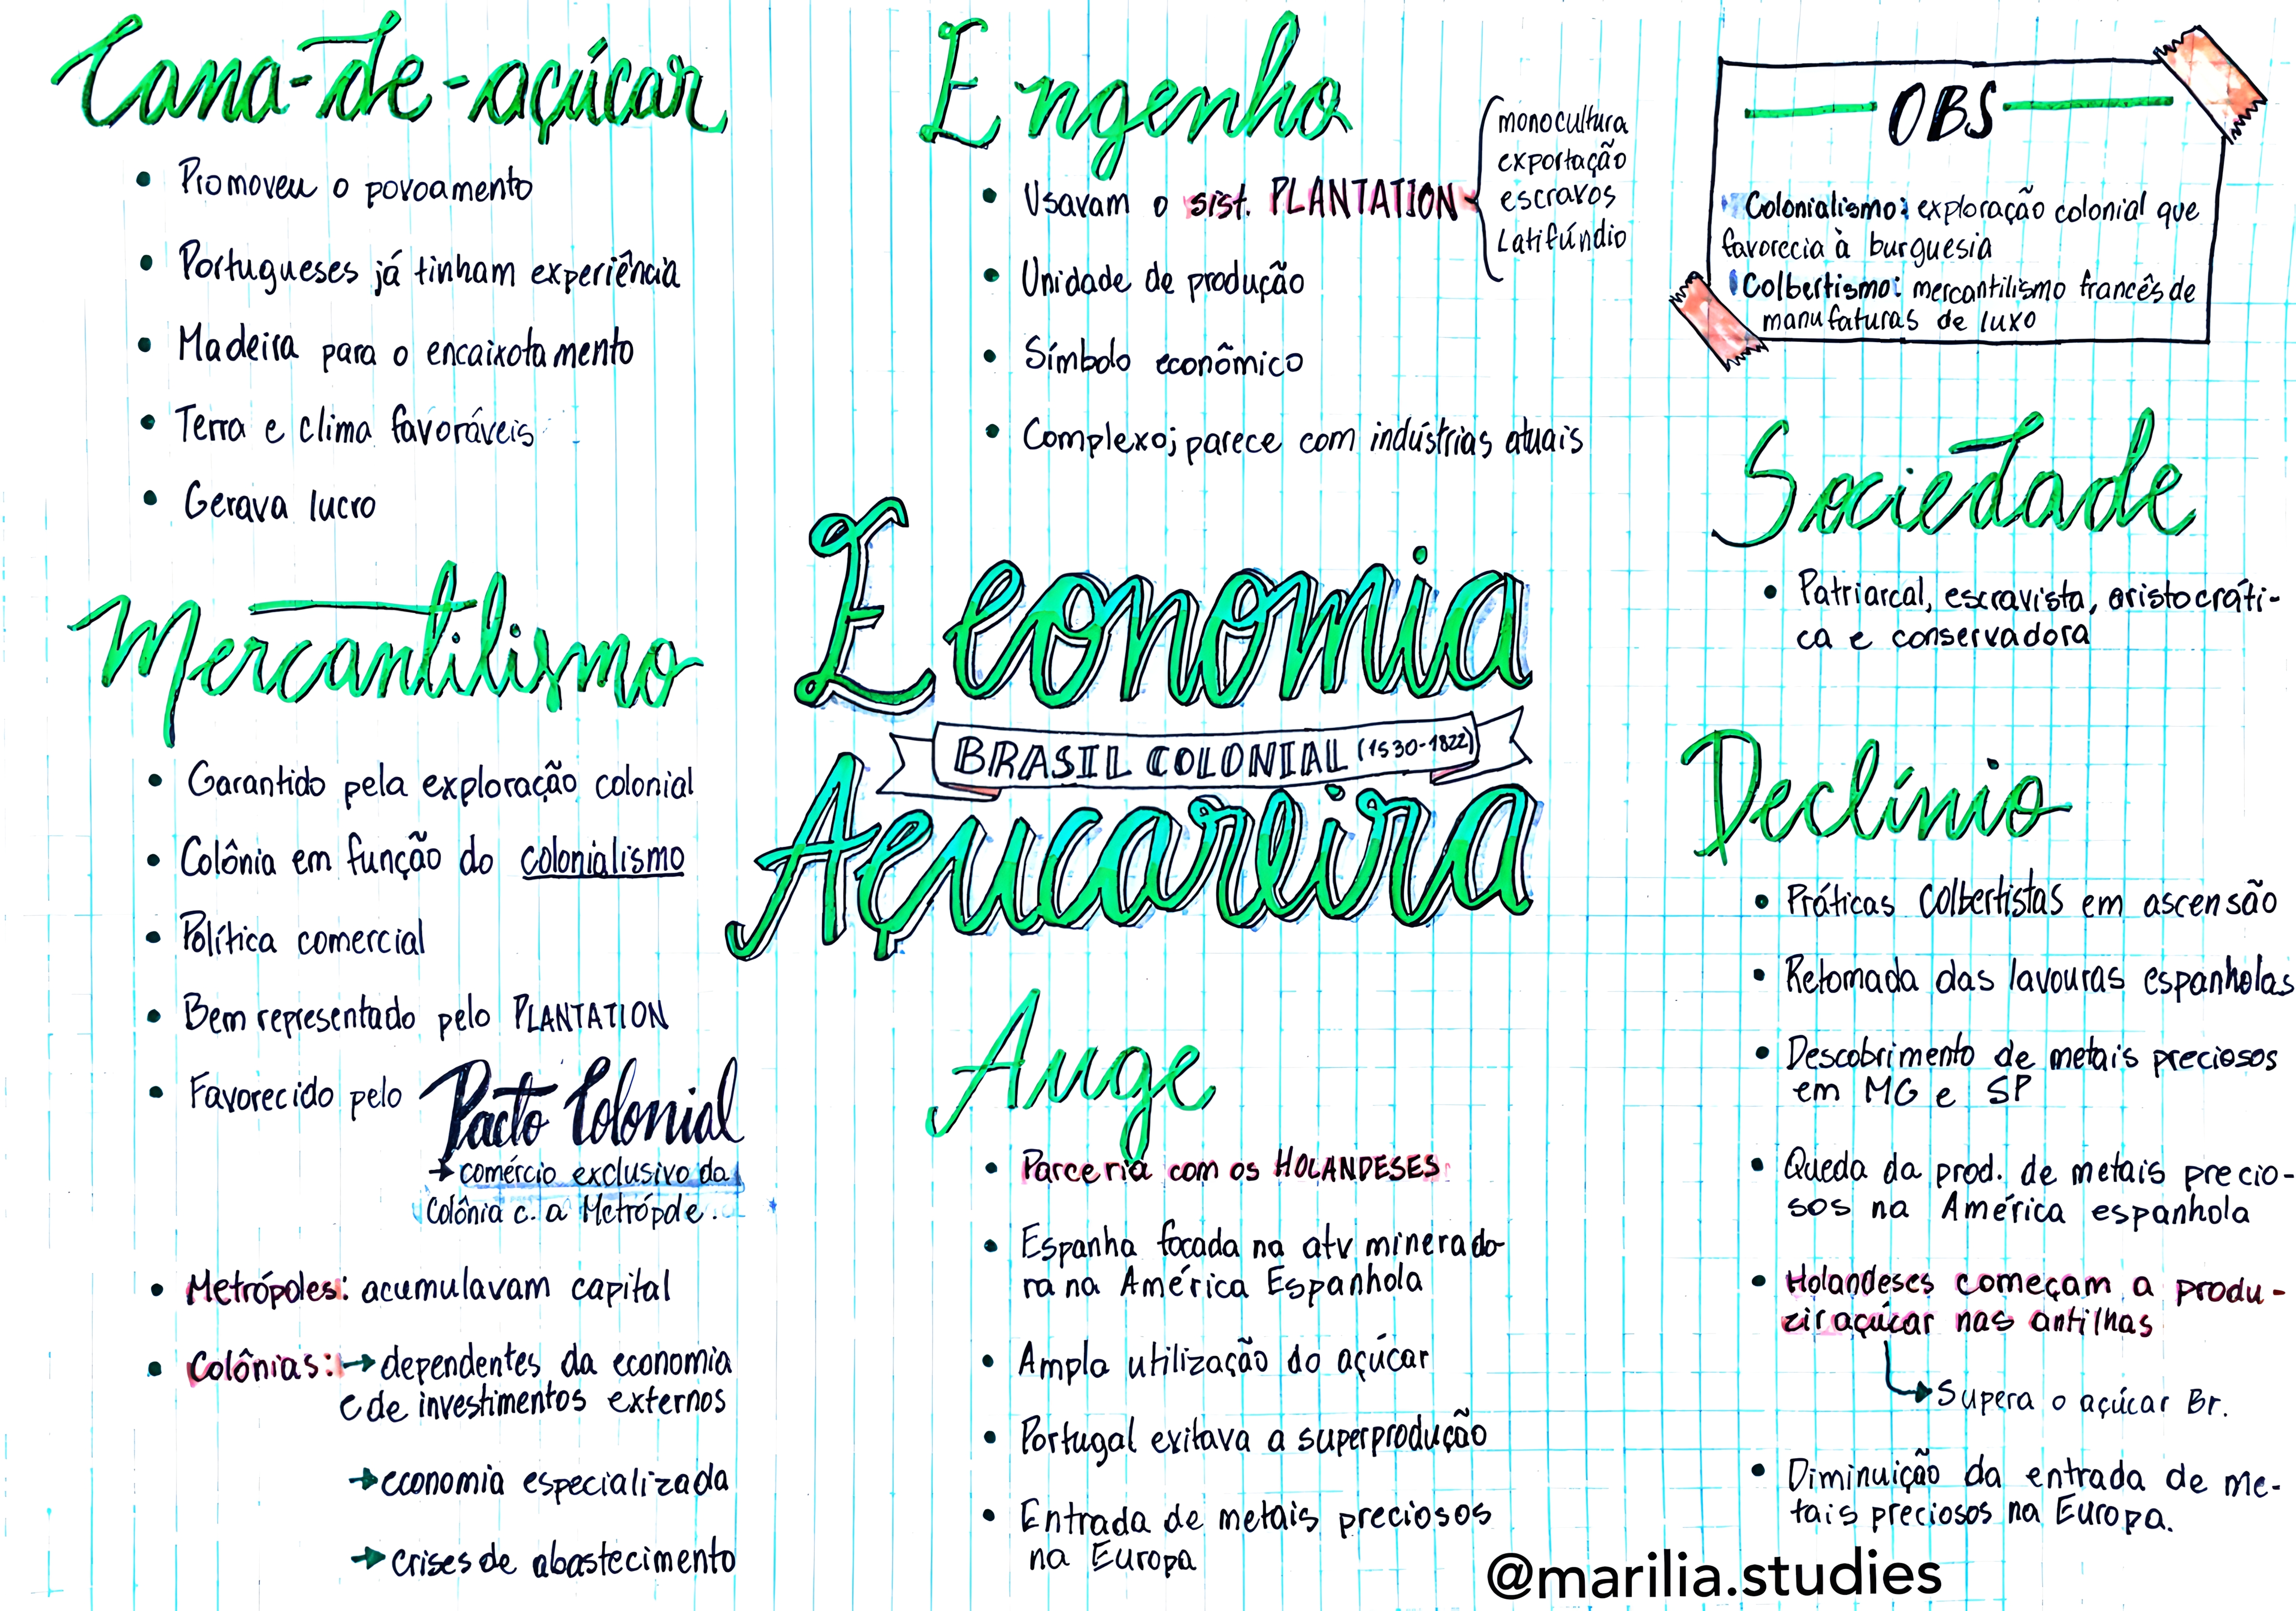 Cana-de-açúcar
• Promoveu o povoamento
• Portugueses já tinham experiência
• Madeira para o encaixotamento
• Terra e clima favoráveis
• Gerava lucro
Mercantilismo
• Garantido pela exploração colonial
• Colônia em função do colonialismo
• Política comercial
• Bem representado pelo PLANTATION
• Favorecido pelo Pacto Colonial
→ comércio exclusivo da
Colônia c. a Metrópole.
• Metrópoles: acumulavam capital
• Colônias: → dependentes da economia
e de investimentos externos
→ economia especializada
→ crises de abastecimento
Engenho
• Usavam o sist. PLANTATION
monocultura
exportação
escravos
Latifúndio
• Unidade de produção
• Símbolo econômico
• Complexo; parece com indústrias atuais
Economia
BRASIL COLONIAL (1530-1822)
Açucareira
Auge
• Parceria com os HOLANDESES
• Espanha focada na atv minerado-
ra na América Espanhola
• Ampla utilização do açúcar
• Portugal evitava a superprodução
• Entrada de metais preciosos
na Europa
OBS
Colonialismo: exploração colonial que
favorecia à burguesia
Colbertismo: mercantilismo francês de
manufaturas de luxo
Sociedade
• Patriarcal, escravista, aristocráti-
ca e conservadora
Declínio
• Práticas Colbertistas em ascensão
• Retomada das lavouras espanholas
• Descobrimento de metais preciosos
em MG e SP
• Queda da prod. de metais precio-
sos na América espanhola
• Holandeses começam a produ-
zir açúcar nas antilhas
Supera o açúcar Br.
• Diminuição da entrada de me-
tais preciosos na Europa.
@marilia.studies